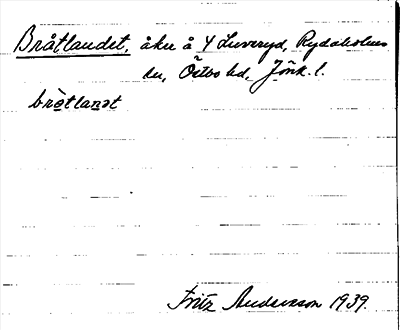 Bråtlandet, åker å Y Luveryd, Rydaholms
sn, Östbo hd, Jönk. l.
brètlanat
Fritz Andersson 1939.